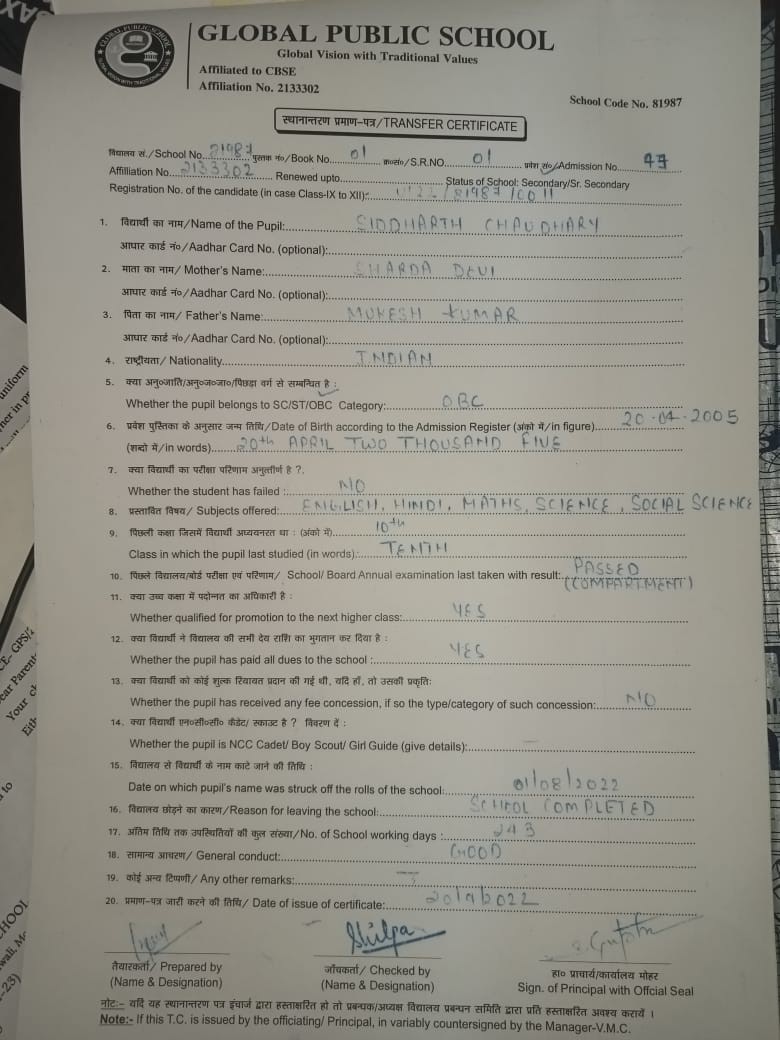 GLOBAL PUBLIC SCHOOL
Global Vision with Traditional Values
Affiliated to CBSE
Affiliation No. 2133302
School Code No. 81987
स्थानान्तरण प्रमाण-पत्र/TRANSFER CERTIFICATE
विद्यालय सं./School No. 81987 पुस्तक नं०/Book No. 01 क्र०सं०/S.R.NO. 01 प्रवेश सं०/Admission No. 47
Affiliation No. 2133302 Renewed upto Status of School: Secondary/Sr. Secondary
Registration No. of the candidate (in case Class-IX to XII):- /81987/0011
1. विद्यार्थी का नाम/Name of the Pupil: SIDDHARTH CHAUDHARY
आधार कार्ड नं०/Aadhar Card No. (optional):
2. माता का नाम/ Mother's Name: SHARDA DEVI
आधार कार्ड नं०/Aadhar Card No. (optional):
3. पिता का नाम/ Father's Name: MUKESH KUMAR
आधार कार्ड नं०/Aadhar Card No. (optional):
4. राष्ट्रीयता/ Nationality INDIAN
5. क्या अनु०जाति/अनु०ज०जा०/पिछड़ा वर्ग से सम्बन्धित है :
Whether the pupil belongs to SC/ST/OBC Category: OBC
6. प्रवेश पुस्तिका के अनुसार जन्म तिथि/Date of Birth according to the Admission Register (अंको में/in figure) 20-04-2005
(शब्दो में/in words) 20th APRIL TWO THOUSAND FIVE
7. क्या विद्यार्थी का परीक्षा परिणाम अनुत्तीर्ण है ?.
Whether the student has failed : NO
8. प्रस्तावित विषय/ Subjects offered: ENGLISH, HINDI, MATHS, SCIENCE, SOCIAL SCIENCE
9. पिछली कक्षा जिसमें विद्यार्थी अध्ययनरत था : (अंको में) 10th
Class in which the pupil last studied (in words): TENTH
10. पिछले विद्यालय/बोर्ड परीक्षा एवं परिणाम/ School/ Board Annual examination last taken with result: PASSED
(COMPARTMENT)
11. क्या उच्च कक्षा में पदोन्नत का अधिकारी है :
Whether qualified for promotion to the next higher class: YES
12. क्या विद्यार्थी ने विद्यालय की सभी देय राशि का भुगतान कर दिया है :
Whether the pupil has paid all dues to the school : YES
13. क्या विद्यार्थी को कोई शुल्क रियायत प्रदान की गई थी, यदि हाँ, तो उसकी प्रकृति:
Whether the pupil has received any fee concession, if so the type/category of such concession: NO
14. क्या विद्यार्थी एन०सी०सी० कैडेट/ स्काउट है ? विवरण दें :
Whether the pupil is NCC Cadet/ Boy Scout/ Girl Guide (give details): —
15. विद्यालय से विद्यार्थी के नाम काटे जाने की तिथि :
Date on which pupil's name was struck off the rolls of the school: 01/08/2022
16. विद्यालय छोड़ने का कारण/Reason for leaving the school: SCHOOL COMPLETED
17. अंतिम तिथि तक उपस्थितियों की कुल संख्या/No. of School working days : 243
18. सामान्य आचरण/ General conduct: GOOD
19. कोई अन्य टिप्पणी/ Any other remarks:
20. प्रमाण-पत्र जारी करने की तिथि/ Date of issue of certificate: 20/9/2022
Shilpa
S. Gupta
तैयारकर्ता/ Prepared by
(Name & Designation)
जाँचकर्ता/ Checked by
(Name & Designation)
ह० प्राचार्य/कार्यालय मोहर
Sign. of Principal with Offcial Seal
नोट:- यदि यह स्थानान्तरण पत्र इंचार्ज द्वारा हस्ताक्षरित हो तो प्रबन्धक/अध्यक्ष विद्यालय प्रबन्धन समिति द्वारा प्रति हस्ताक्षरित अवश्य करायें ।
Note:- If this T.C. is issued by the officiating/ Principal, in variably countersigned by the Manager-V.M.C.